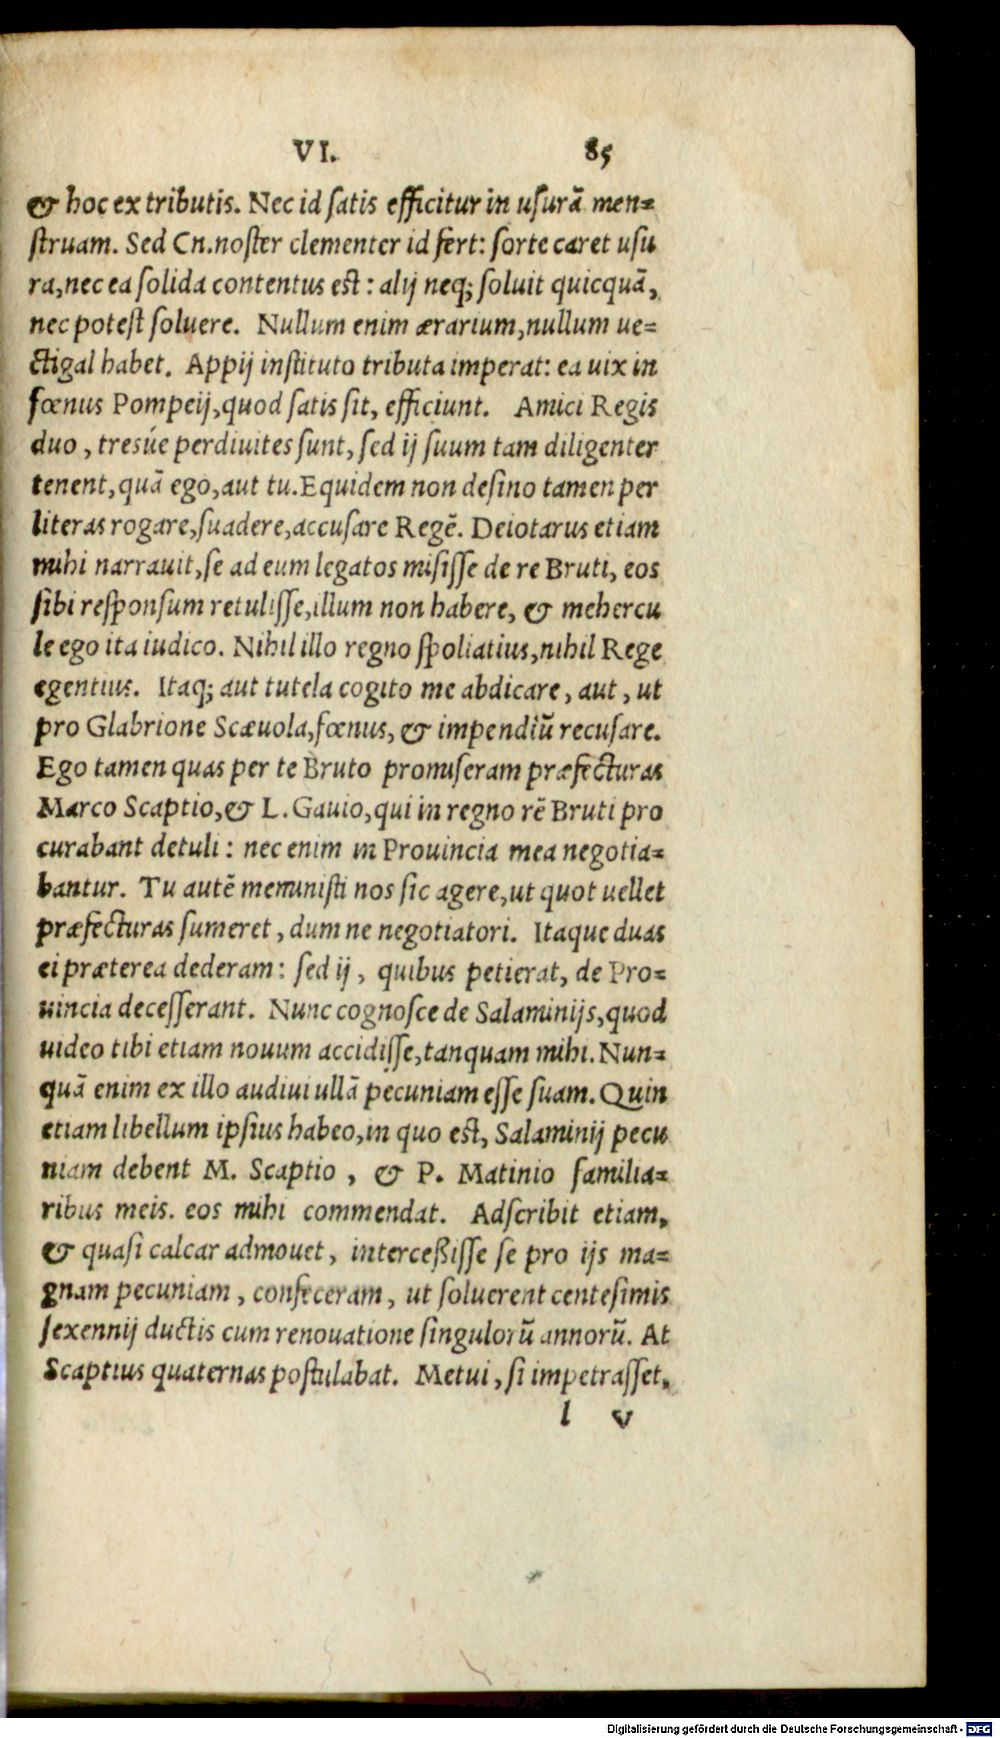 VI. 85
& hoc ex tributis. Nec id ſatis efficitur in uſurā men=
ſtruam. Sed Cn. noſter clementer id fert: ſorte caret uſu
ra, nec ea ſolida contentus eſt: alij neq; ſoluit quicquā,
nec poteſt ſoluere. Nullum enim ærarium, nullum ue=
ctigal habet. Appij inſtituto tributa imperat: ea uix in
fœnus Pompeij, quod ſatis ſit, efficiunt. Amici Regis
duo, tresúe perdiuites ſunt, ſed ij ſuum tam diligenter
tenent, quā ego, aut tu. Equidem non deſino tamen per
literas rogare, ſuadere, accuſare Regē. Deiotarus etiam
mihi narrauit, ſe ad eum legatos miſiſſe de re Bruti, eos
ſibi reſponſum retuliſſe, illum non habere, & mehercu
le ego ita iudico. Nihil illo regno ſpoliatius, nihil Rege
egentius. Itaq; aut tutela cogito me abdicare, aut, ut
pro Glabrione Scæuola, fœnus, & impendiū recuſare.
Ego tamen quas per te Bruto promiſeram præfecturas
Marco Scaptio, & L. Gauio, qui in regno rē Bruti pro
curabant detuli: nec enim in Prouincia mea negotia=
bantur. Tu autē meminiſti nos ſic agere, ut quot uellet
præfecturas ſumeret, dum ne negotiatori. Itaque duas
ei præterea dederam: ſed ij, quibus petierat, de Pro=
uincia deceſſerant. Nunc cognoſce de Salaminijs, quod
uideo tibi etiam nouum accidiſſe, tanquam mihi. Nun=
quā enim ex illo audiui ullā pecuniam eſſe ſuam. Quin
etiam libellum ipſius habeo, in quo eſt, Salaminij pecu
niam debent M. Scaptio, & P. Matinio familia=
ribus meis. eos mihi commendat. Adſcribit etiam,
& quaſi calcar admouet, interceßiſſe ſe pro ijs ma=
gnam pecuniam, confeceram, ut ſoluerent centeſimis
ſexennij ductis cum renouatione ſingulorū annorū. At
Scaptius quaternas poſtulabat. Metui, ſi impetraſſet,
l v
Digitalisierung gefördert durch die Deutsche Forschungsgemeinschaft - DFG